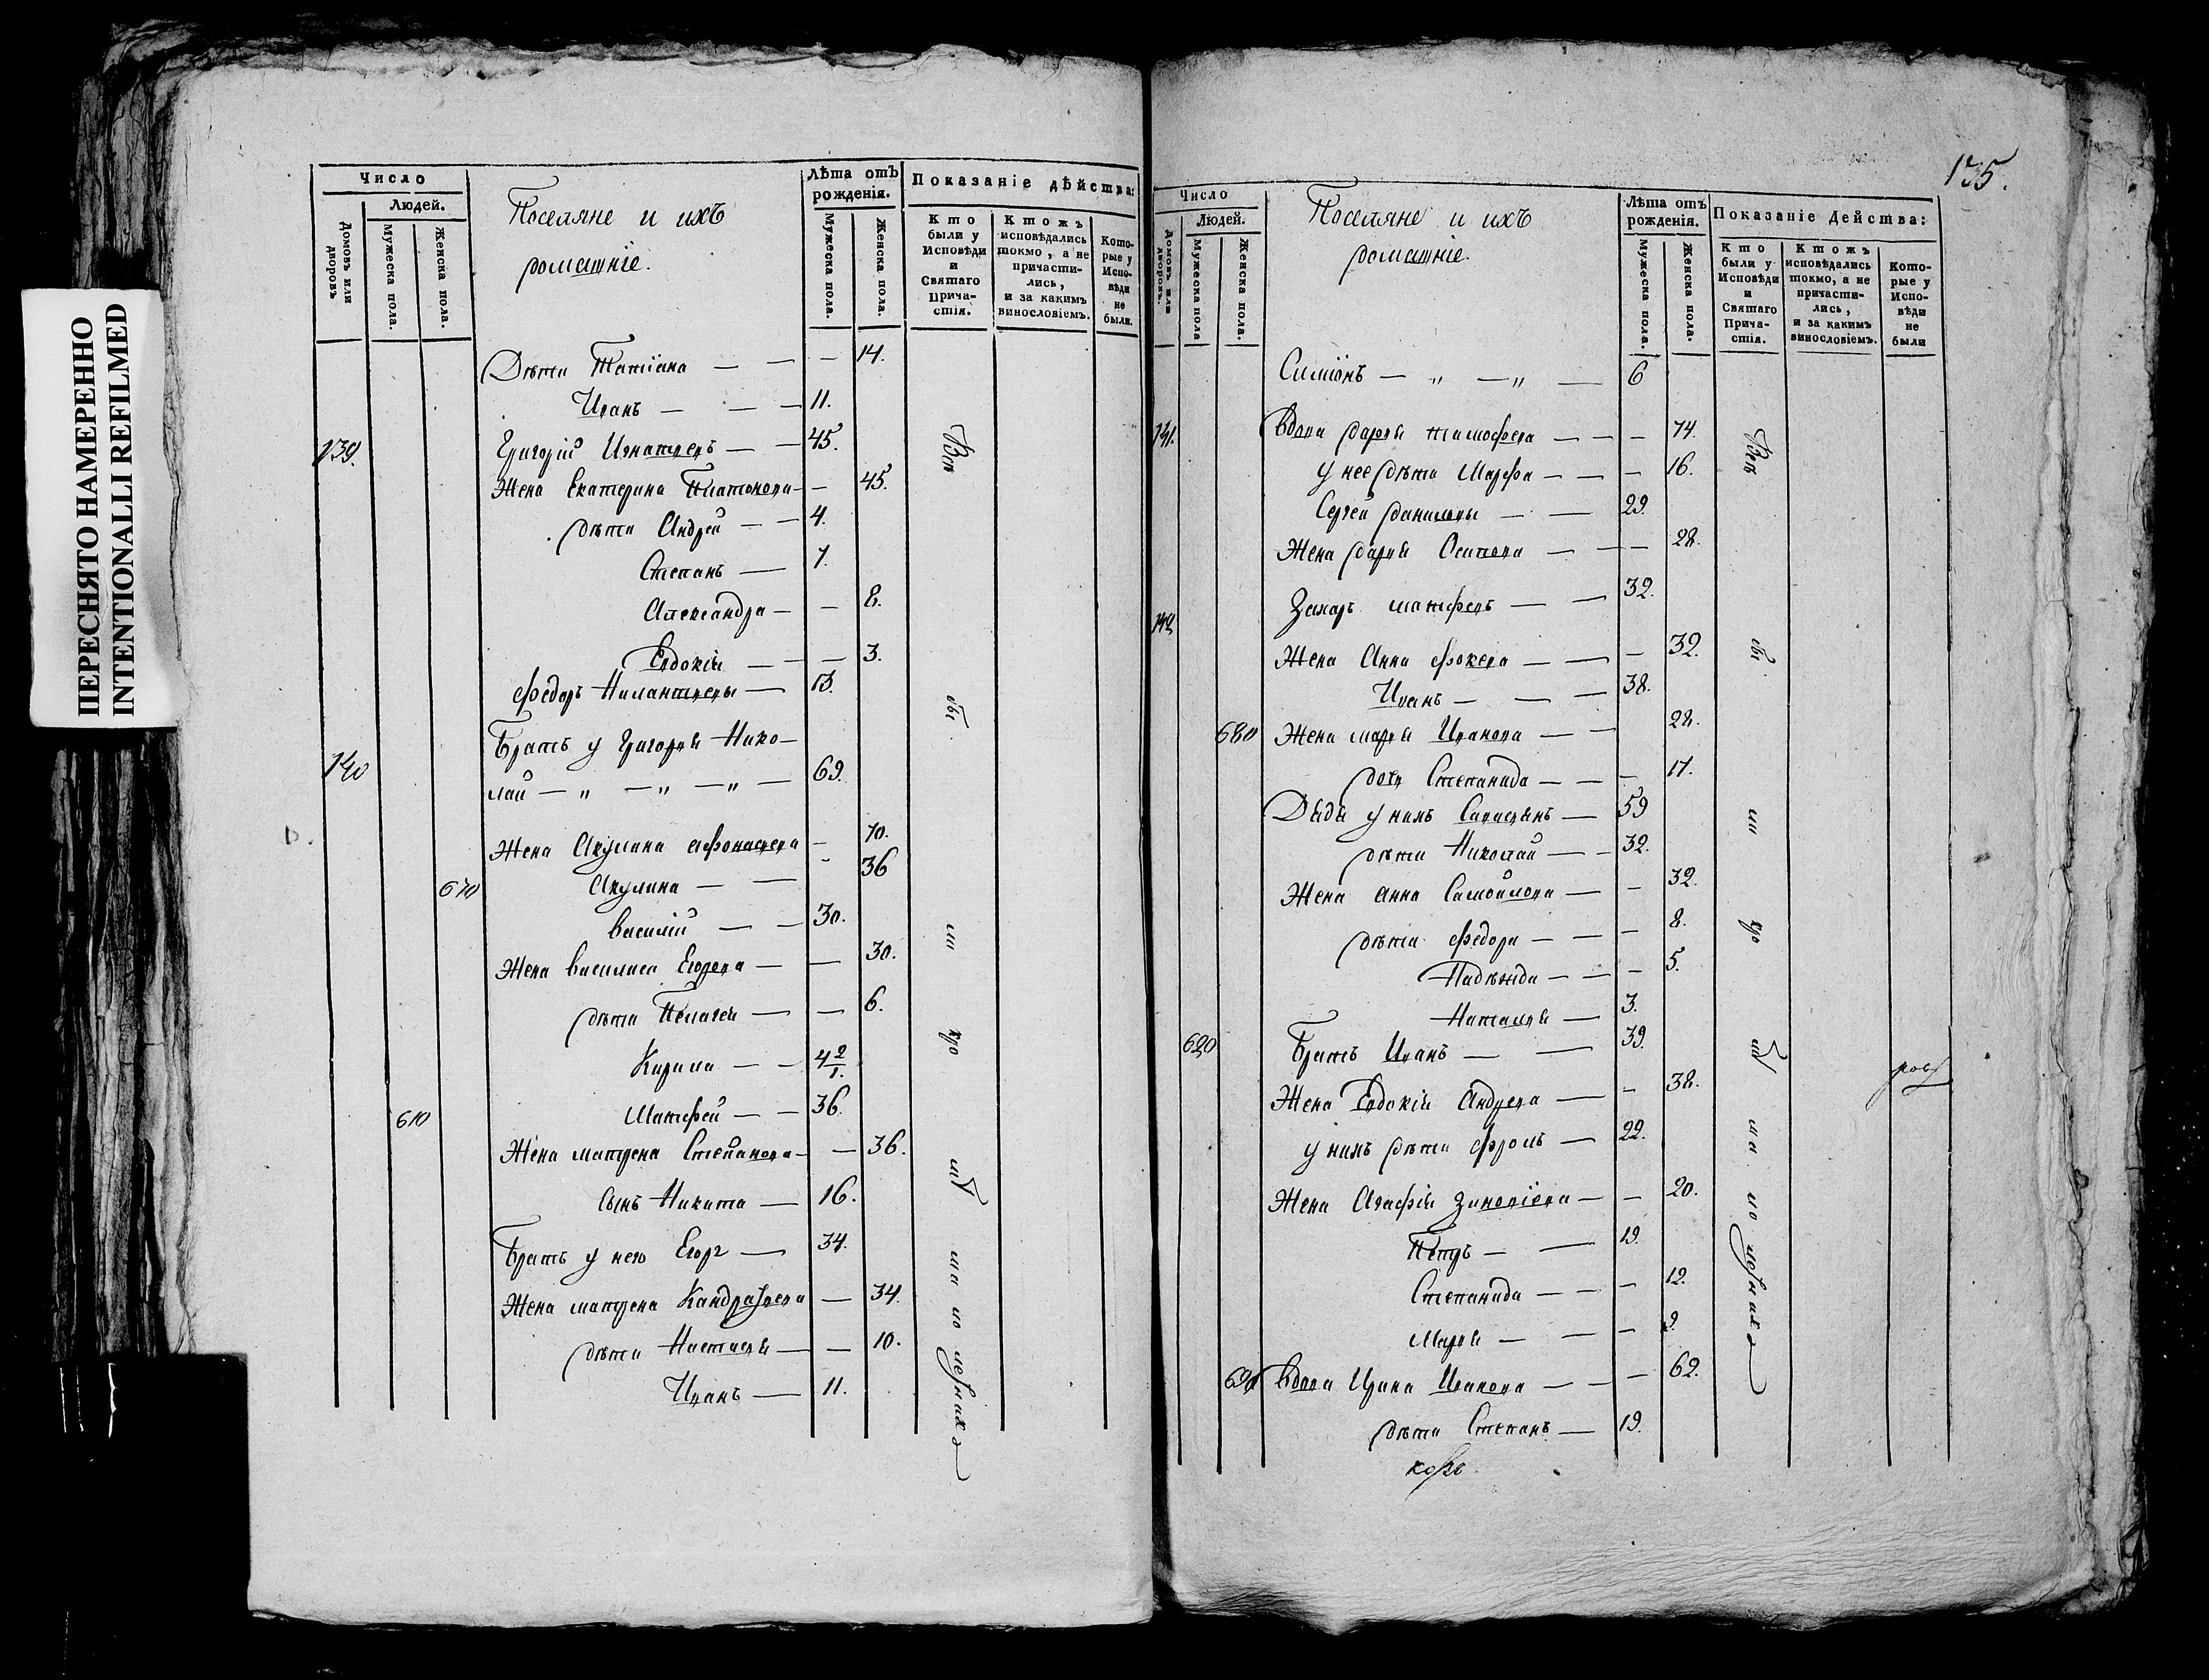 ПЕРЕСНЯТО НАМЕРЕННО
INTENTIONALLI REFILMED
Число
Людей.
Домовъ или дворовъ
Мужеска пола.
Женска пола.
Поселяне и ихъ
домашніе.
Лѣта отъ рожденія.
Мужеска пола.
Женска пола.
Показаніе дѣйства:
Кто были у Исповѣди и Святаго Прича-стія.
Ктожъ исповѣдались токмо, а не причасти-лись, и за какимъ винословіемъ.
Кото-рые у Испо-вѣди не были.
Дѣти Татіана — — — 14.
Иванъ — — — 11.
139. Григорій Игнатьевъ — — 45.
Жена Екатерина Платонова — — 45.
дѣти Андрей — — 4.
Степанъ — 7.
Александра — — 8.
Евдокія — — — 3.
Федоръ — 13.
Братъ у Григорья Нико-
140 лай — „ — „ — „ — 69.
Жена Акулина Афонасьева — 70.
670 Акулина — — - 36
Василій — — 30.
Жена Василиса Егорева — — 30.
дѣти Пелагея — — 6.
Кирила — — 4 2/1.
610 Матфей — — 36.
Жена матрена Степанова — — 36.
сынъ Никита — 16.
Братъ у него Егоръ — 34.
Жена матрена Кандратьева — 34.
дѣти Настасья — — 10.
Иванъ — 11.
Всѣ
бы
ли
ма
ло
135.
Число
Людей.
Домовъ или дворовъ.
Мужеска пола
Женска пола.
Поселяне и ихъ
домашніе.
Лѣта отъ рожденія.
Мужеска пола.
Женска пола.
Показаніе Действа:
Кто были у Исповѣди и Святаго Прича-стія.
Ктожъ исповѣдались токмо, а не причасти-лись, и за какимъ винословіемъ.
Кото-рые у Испо-вѣди не были
Симіонъ — „ — „ — 6
141. Вдова дарья тимофева — — — 74.
у нее дѣти Марфа — — — 16.
Сергей даниловъ — — 29.
Жена дарья Осипова — — — 28.
142 Захаръ матфевъ — — 32.
Жена Анна фокева — — — 32.
Иванъ — — — 38.
680 Жена марья Иванова — — 28.
дочь Степанида — — — 17.
Дядя у нихъ — 59
дѣти Николай — — 32.
Жена анна Самойлова — — 32.
дѣти федора — — — 8.
Надѣжда — — — 5.
Наталья — 3.
620 Братъ Иванъ — — 39.
Жена Евдокія Андреева — — 38.
у нихъ дѣти фролъ — 22.
Жена Агафія Зиновіева — — 20.
Петръ — — 19.
Степанида — — — 12.
Марья — — — 9.
690 Вдова Ирина Иванова — — — 62.
дѣти Степанъ — 19.
Всѣ
бы
ли
ма
ло